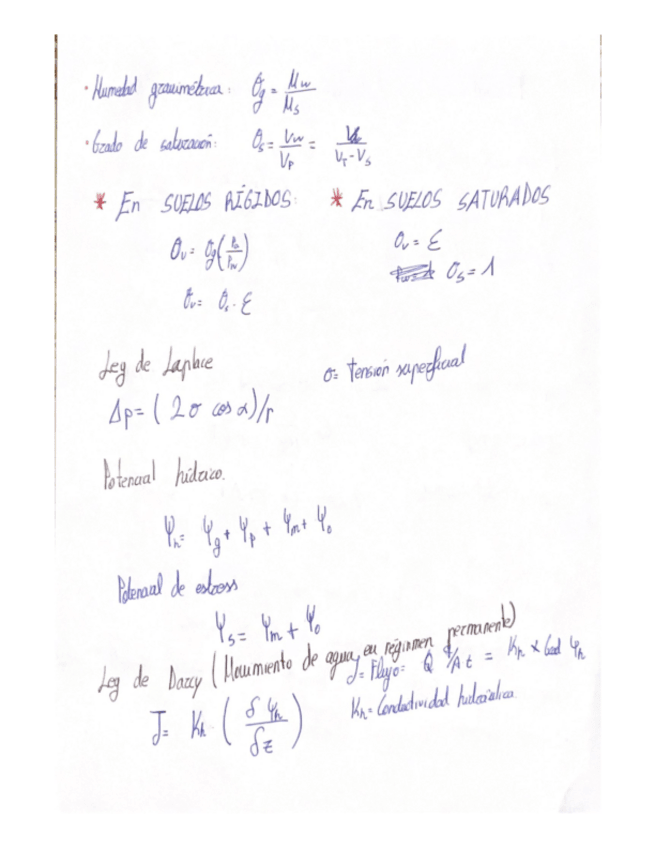 · Humedad gravimétrica: θg = Mw/Ms
· Grado de saturación: θs = Vw/Vp = /VT-Vs
* En SUELOS RÍGIDOS:
* En SUELOS SATURADOS
θv = θg( / )
θv = ε
θs = 1
θv = θs · ε
Ley de Laplace
σ = tensión superficial
Δp = ( 2 σ cos α)/r
Potencial hídrico.
Ψh = Ψg + Ψp + Ψm + Ψo
Potencial de estress
Ψs = Ψm + Ψo
Ley de Darcy (Movimiento de agua, en régimen permanente)
J = Flujo = Q /A t = Kh × Grad Ψh
J = Kh ( δ Ψh / δ z )
Kh = Conductividad hidráulica